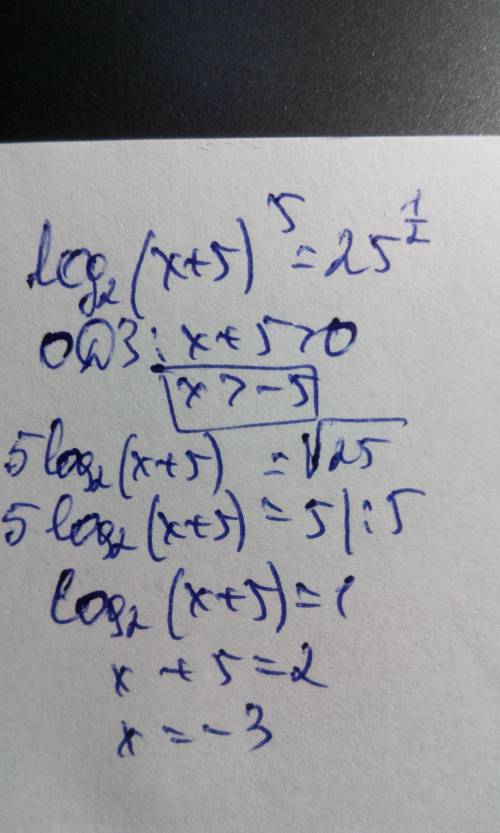 log₂(x+5)⁵ = 25^(1/2)
ОДЗ: x+5>0
x > -5
5log₂(x+5) = √25
5log₂(x+5) = 5 |:5
log₂(x+5) = 1
x + 5 = 2
x = -3